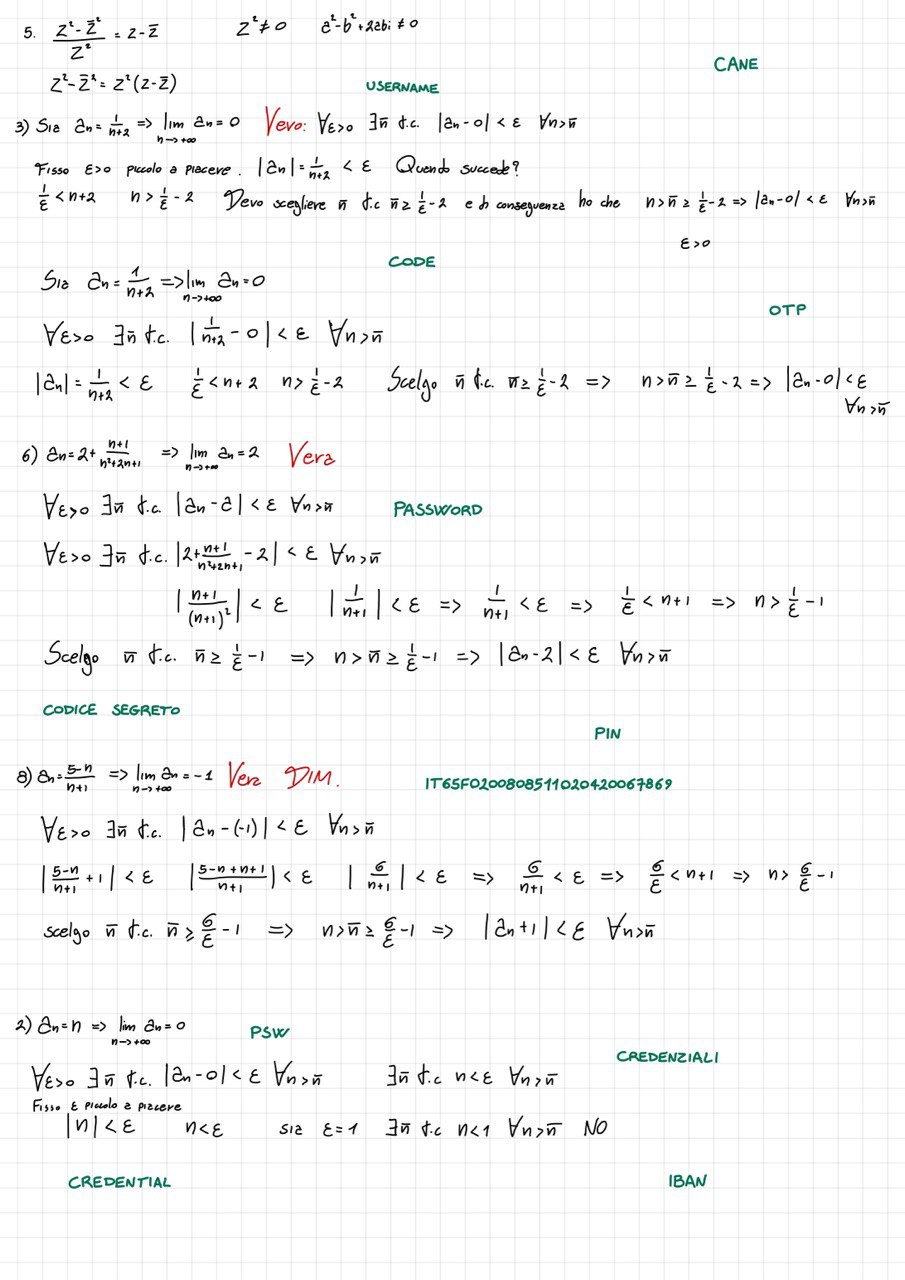 5. (z² - z̄²)/z² = z - z̄ z² ≠ 0 a² - b² + 2abi ≠ 0
CANE
z² - z̄² = z²(z - z̄)
USERNAME
3) Sia an = 1/(n+2) => lim n->+∞ an = 0 Vero: ∀ε>0 ∃n̄ t.c. |an - 0| < ε ∀n>n̄
Fisso ε>0 piccolo a piacere. |an| = 1/(n+2) < ε Quando succede?
1/ε < n+2 n > 1/ε - 2 Devo scegliere n̄ t.c n̄ ≥ 1/ε - 2 e di conseguenza ho che n > n̄ ≥ 1/ε - 2 => |an - 0| < ε ∀n>n̄
ε>0
CODE
Sia an = 1/(n+2) => lim n->+∞ an = 0
OTP
∀ε>0 ∃n̄ t.c. |1/(n+2) - 0| < ε ∀n>n̄
|an| = 1/(n+2) < ε 1/ε < n+2 n > 1/ε - 2 Scelgo n̄ t.c. n̄ ≥ 1/ε - 2 => n > n̄ ≥ 1/ε - 2 => |an - 0| < ε
∀n>n̄
6) an = 2 + (n+1)/(n²+2n+1) => lim n->+∞ an = 2 Vera
∀ε>0 ∃n̄ t.c. |an - a| < ε ∀n>n̄
PASSWORD
∀ε>0 ∃n̄ t.c. |2 + (n+1)/(n²+2n+1) - 2| < ε ∀n>n̄
|(n+1)/(n+1)²| < ε |1/(n+1)| < ε => 1/(n+1) < ε => 1/ε < n+1 => n > 1/ε - 1
Scelgo n̄ t.c. n̄ ≥ 1/ε - 1 => n > n̄ ≥ 1/ε - 1 => |an - 2| < ε ∀n>n̄
CODICE SEGRETO
PIN
8) an = (5-n)/(n+1) => lim n->+∞ an = -1 Vera DIM.
IT65F0200808511020420067869
∀ε>0 ∃n̄ t.c. |an - (-1)| < ε ∀n>n̄
|(5-n)/(n+1) + 1| < ε |(5-n+n+1)/(n+1)| < ε |6/(n+1)| < ε => 6/(n+1) < ε => 6/ε < n+1 => n > 6/ε - 1
scelgo n̄ t.c. n̄ ≥ 6/ε - 1 => n > n̄ ≥ 6/ε - 1 => |an + 1| < ε ∀n>n̄
2) an = n => lim n->+∞ an = 0
PSW
CREDENZIALI
∀ε>0 ∃n̄ t.c. |an - 0| < ε ∀n>n̄ ∃n̄ t.c n < ε ∀n>n̄
Fisso ε piccolo a piacere
|n| < ε n < ε sia ε = 1 ∃n̄ t.c n < 1 ∀n>n̄ NO
CREDENTIAL
IBAN